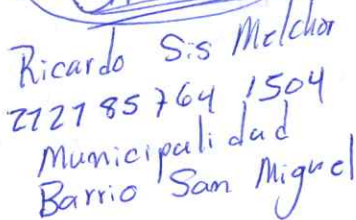 Ricardo Sis Melchor
2721 85764 1504
Municipalidad
Barrio San Miguel